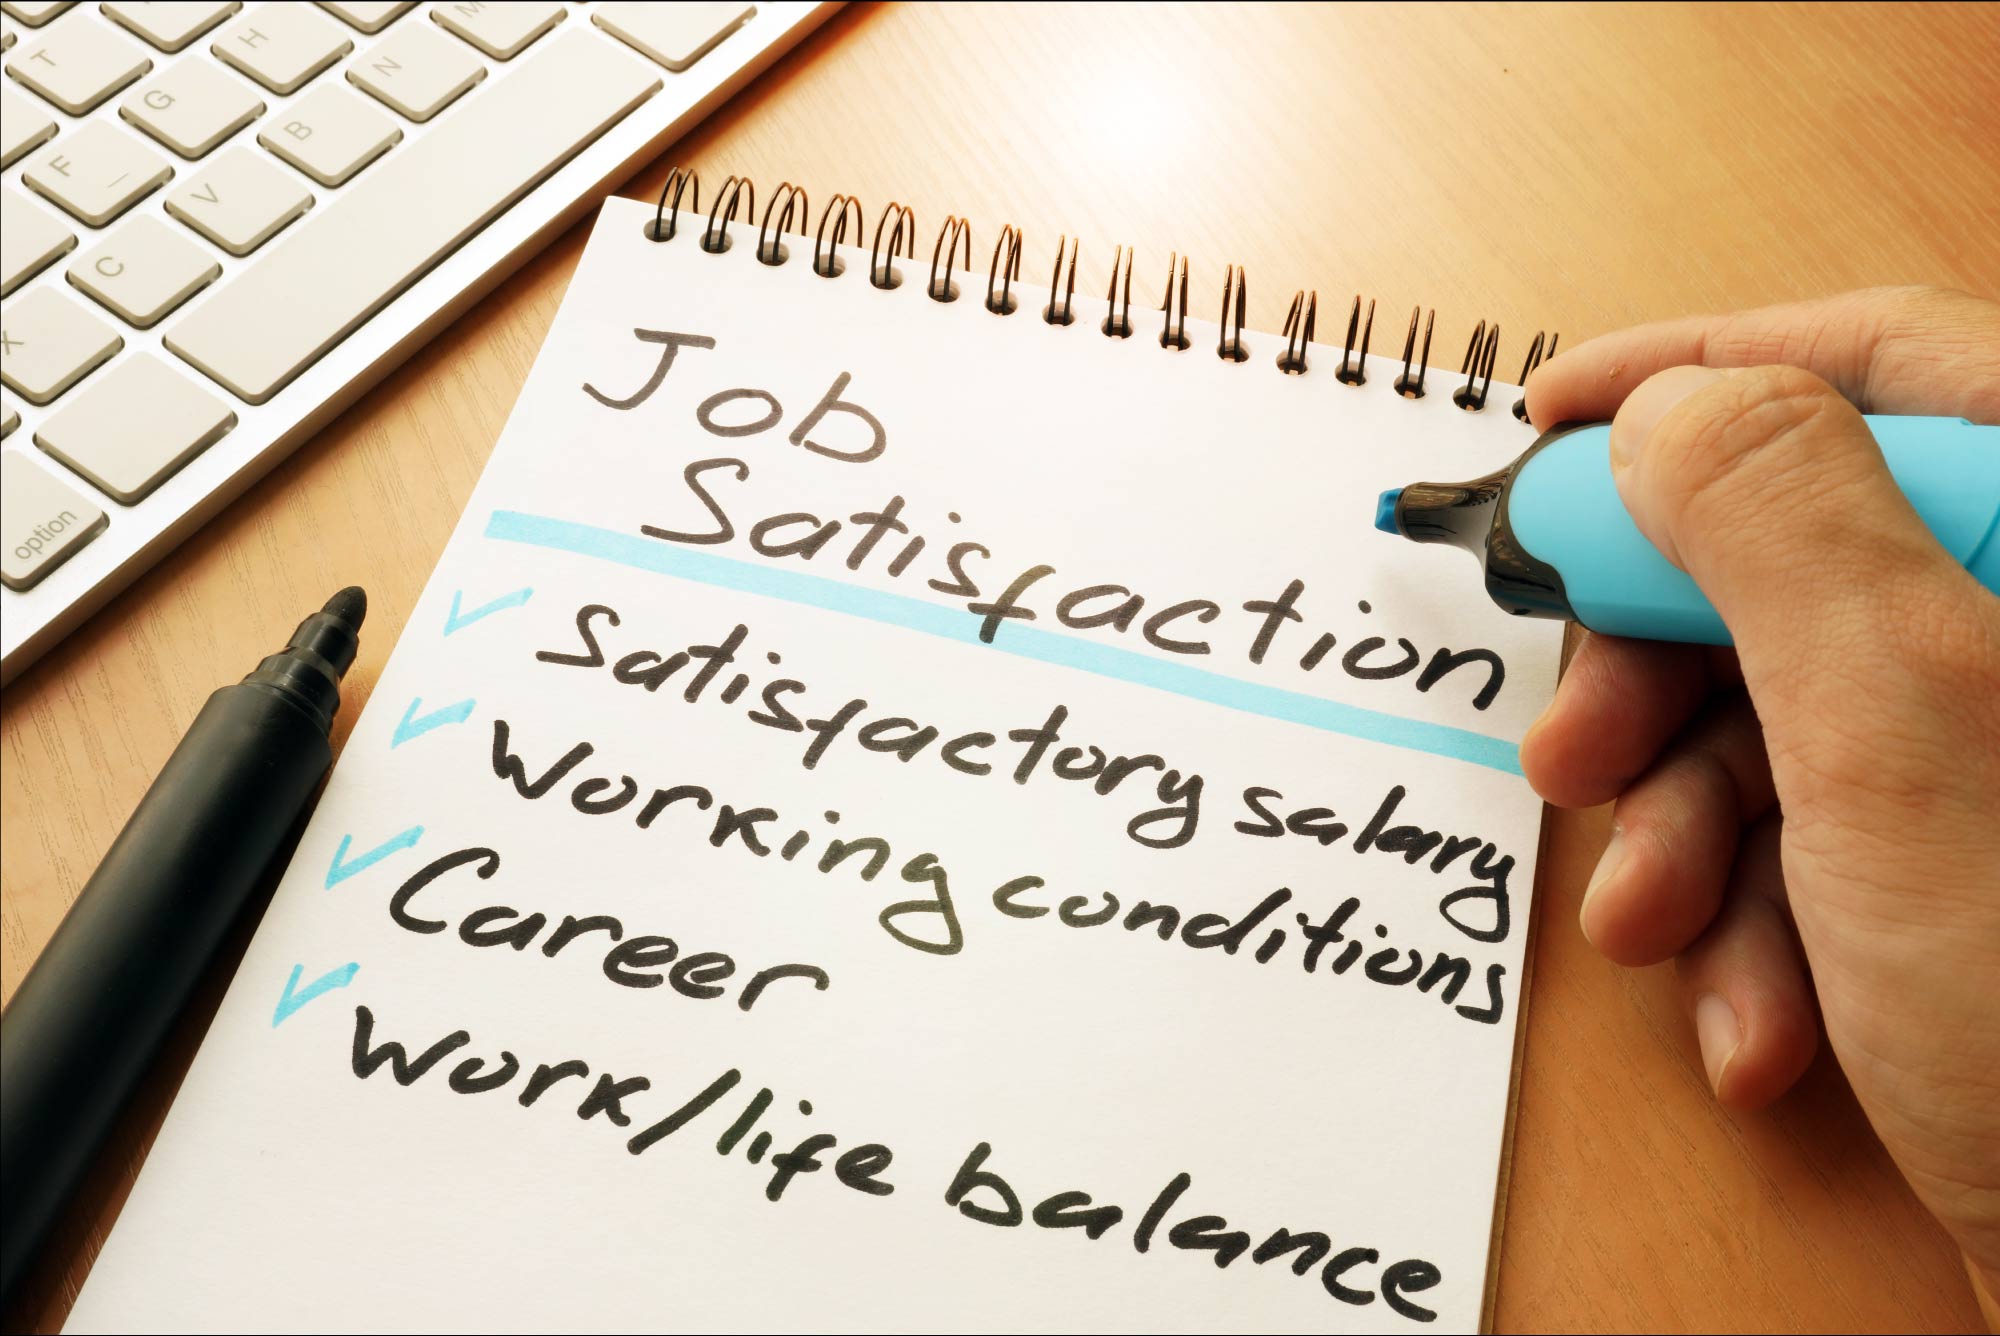 T
H
N
M
G
B
F
V
C
X
option
Job
Satisfaction
Satisfactory salary
Working conditions
Career
Work/life balance